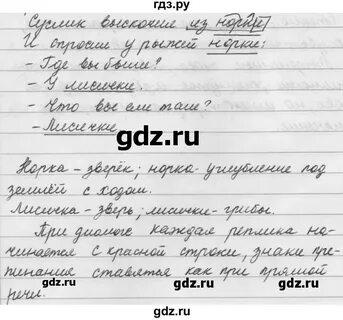 гдз.ру
Суслик выскочил из норки
И спросил у рыжей норки:
- Где вы были?
- У лисички.
- Что вы ели там?
- Лисички.
gdz.ru
gdz.ru
Норка - зверёк; норка - углубление под
землёй с ходом.
Лисичка - зверь; лисички - грибы.
gdz.ru
gdz.ru
При диалоге каждая реплика на-
чинается с красной строки, знаки пре-
пинания ставятся как при прямой
речи.
gdz.ru